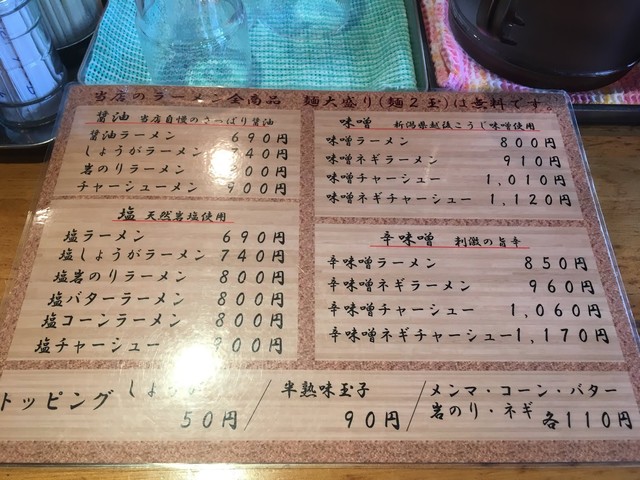 当店のラーメン全商品 麺大盛り(麺2玉)は無料です
醤油 当店自慢のさっぱり醤油
醤油ラーメン 690円
しょうがラーメン 740円
岩のりラーメン 800円
チャーシューメン 900円
塩 天然岩塩使用
塩ラーメン 690円
塩しょうがラーメン 740円
塩岩のりラーメン 800円
塩バターラーメン 800円
塩コーンラーメン 800円
塩チャーシュー 900円
味噌 新潟県越後こうじ味噌使用
味噌ラーメン 800円
味噌ネギラーメン 910円
味噌チャーシュー 1,010円
味噌ネギチャーシュー 1,120円
辛味噌 刺激の旨辛
辛味噌ラーメン 850円
辛味噌ネギラーメン 960円
辛味噌チャーシュー 1,060円
辛味噌ネギチャーシュー 1,170円
トッピング
しょうが
50円
半熟味玉子
90円
メンマ・コーン・バター
岩のり・ネギ 各110円